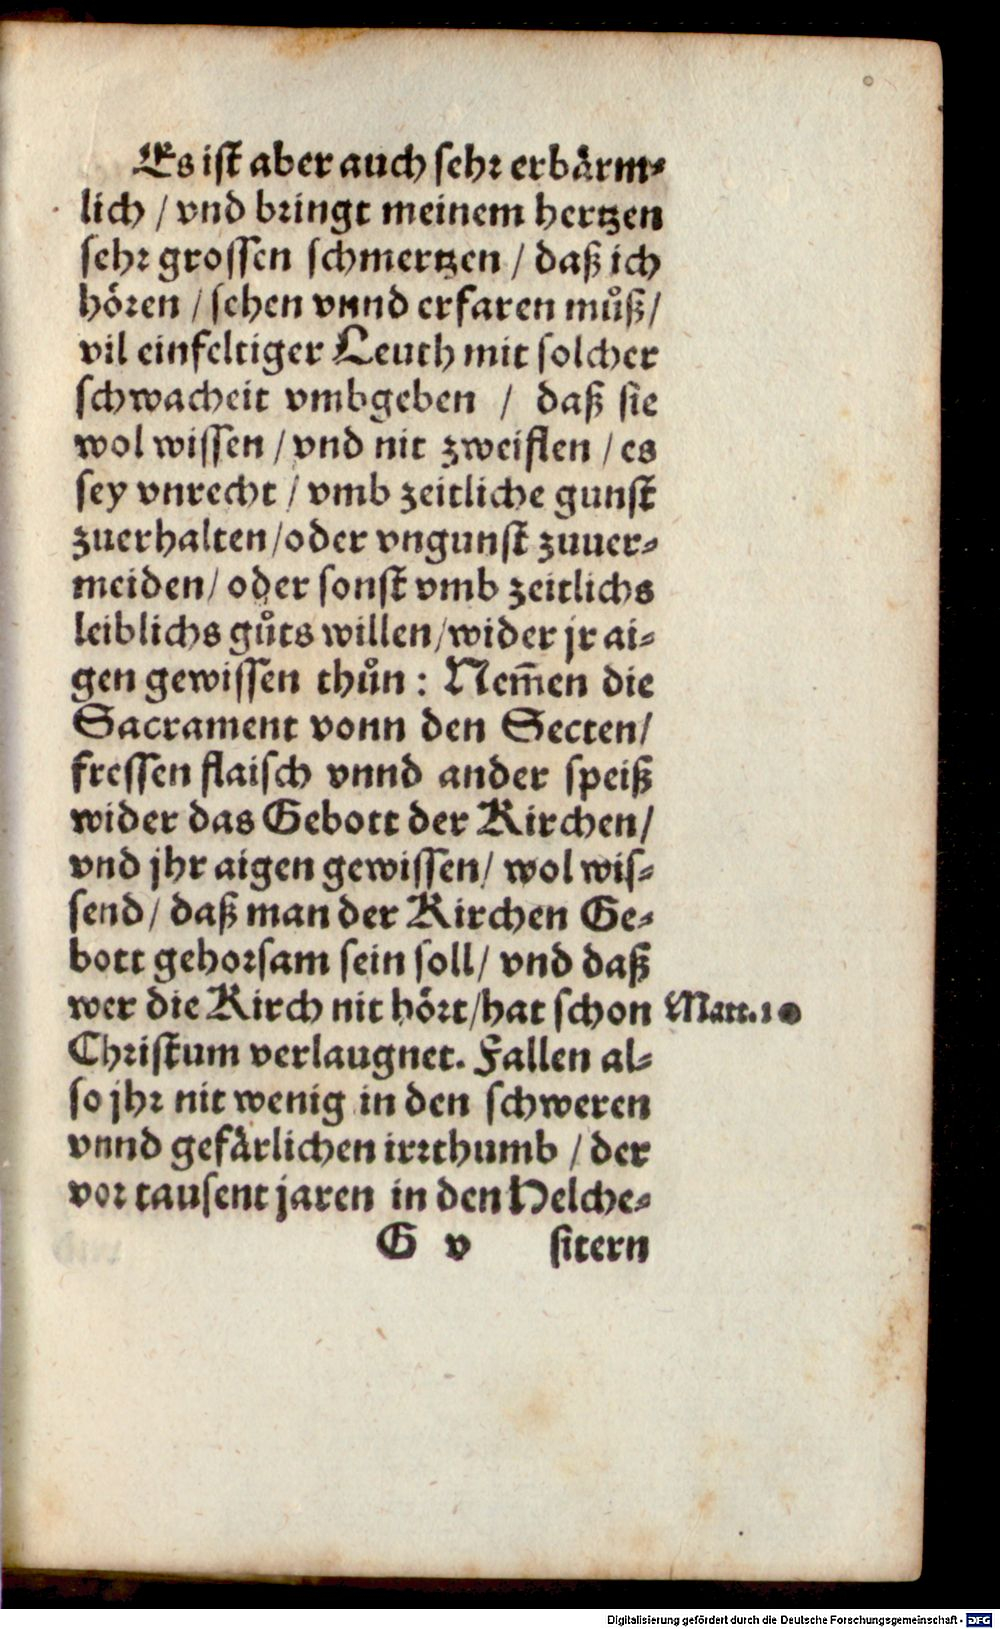 Es iſt aber auch ſehr erbaͤrm⸗
lich / vnd bringt meinem hertzen
ſehr groſſen ſchmertzen / daß ich
hoͤren / ſehen vnnd erfaren muͦß /
vil einfeltiger Leuth mit ſolcher
ſchwacheit vmbgeben / daß ſie
wol wiſſen / vnd nit zweiflen / es
ſey vnrecht / vmb zeitliche gunſt
zuerhalten / oder vngunſt zuuer⸗
meiden / oder ſonſt vmb zeitlichs
leiblichs guͦts willen / wider jr ai⸗
gen gewiſſen thuͦn : Nem̃en die
Sacrament vonn den Secten /
freſſen flaiſch vnnd ander ſpeiß
wider das Gebott der Kirchen /
vnd jhr aigen gewiſſen / wol wiſ⸗
ſend / daß man der Kirchen Ge⸗
bott gehorſam ſein ſoll / vnd daß
wer die Kirch nit hoͤrt / hat ſchon Matt.
Chriſtum verlaugnet. Fallen al⸗
ſo jhr nit wenig in den ſchweren
vnnd gefaͤrlichen irrthumb / der
vor tauſent jaren in den Helche⸗
G v ſitern
Digitalisierung gefördert durch die Deutsche Forschungsgemeinschaft - DFG